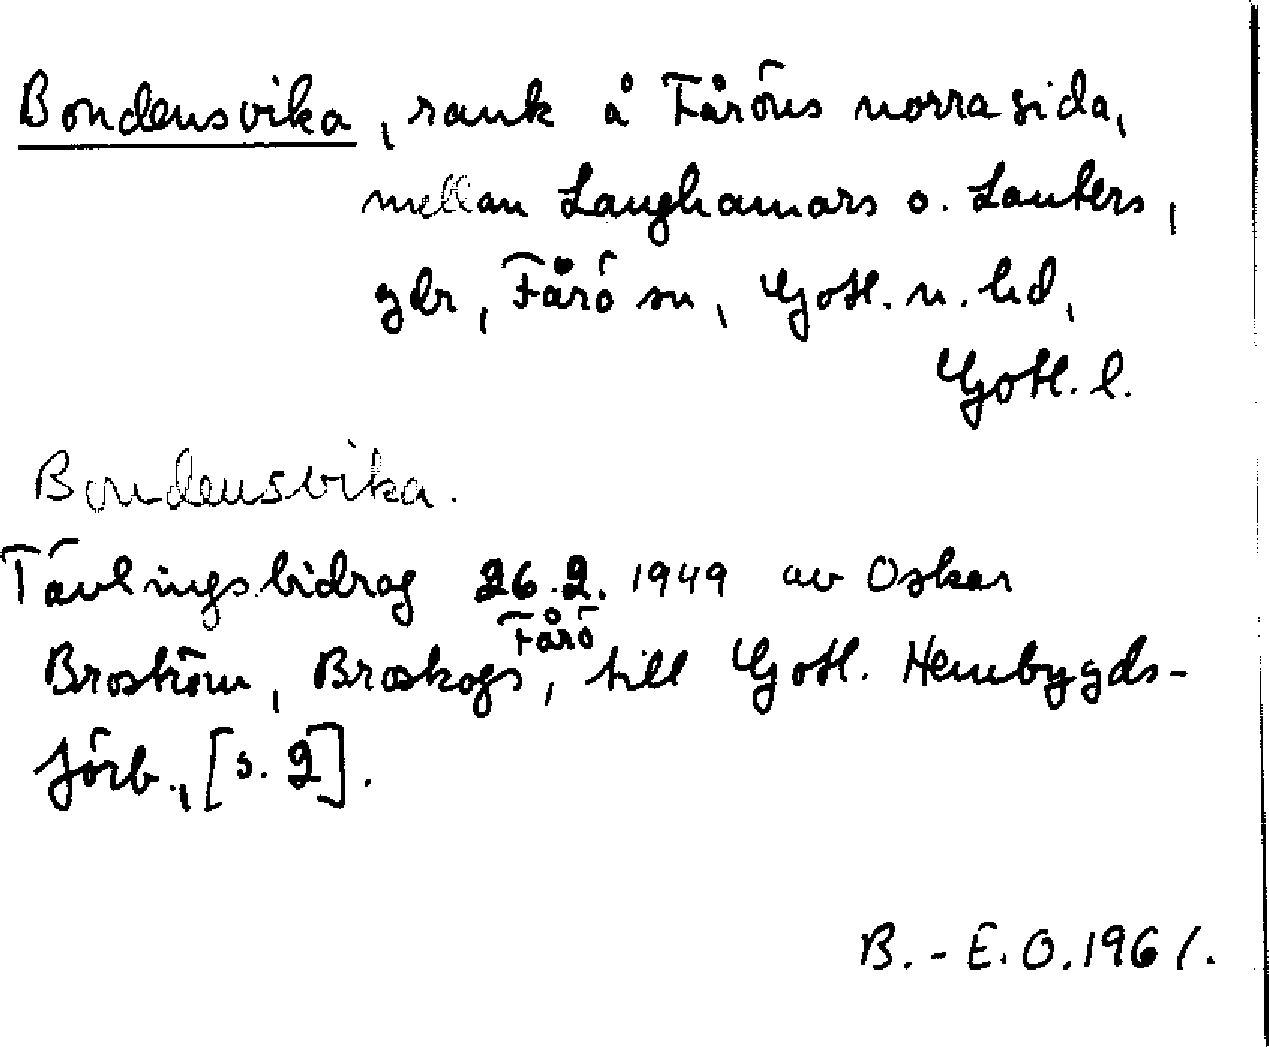 Bondensvika, rauk å Fåröns norra sida,
mellan Langhamars o. Lauters,
gbr, Fårö sn, Gotl. n. hd,
Gotl. l.
Bondensvika.
Tävlingsbidrag 26.2. 1949 av Oskar
Broström, Broskogs, Fårö, till Gotl. Hembygds-
förb., [s. 2].
B.-E.O. 1961.